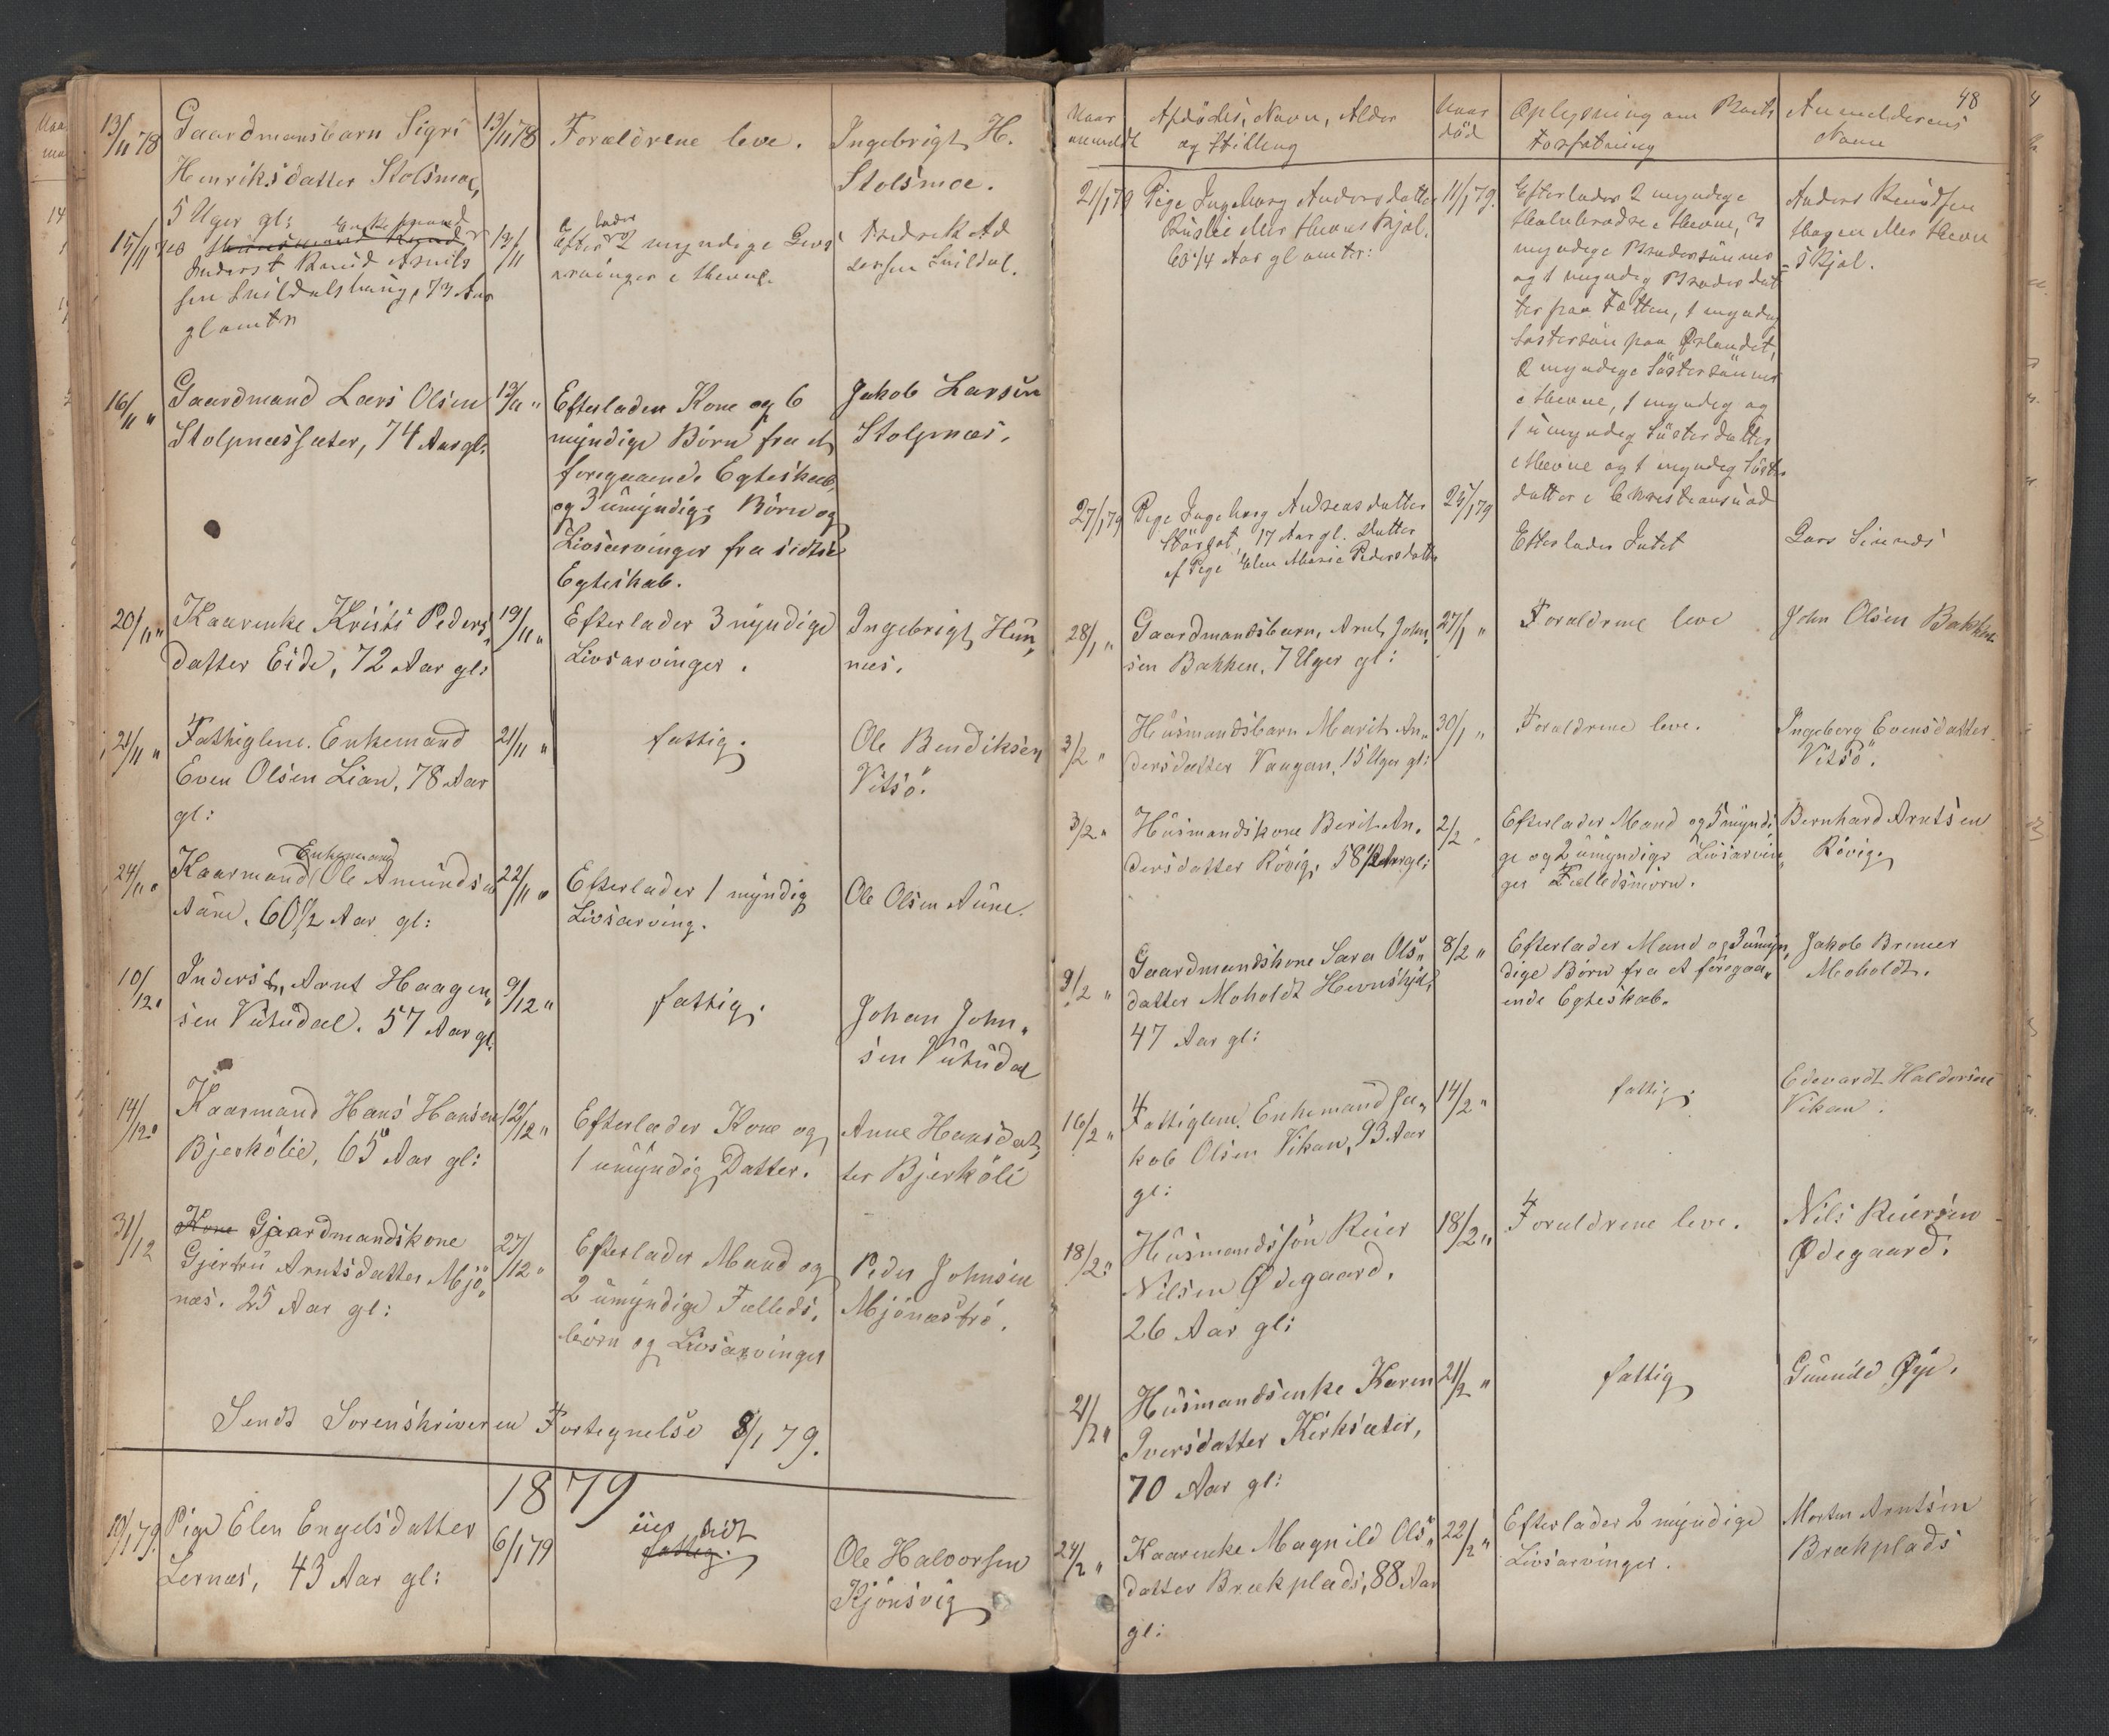 13/11 78 Gaardmansbarn Sigri 13/11 78 Forældrene leve. Ingebrigt H.
Henriksdatter Stolsmoe, Stolsmoe.
5 Uger gl:
15/11 78 Enkemand 13/11 Efterlader 2 myndige Livs Fredrik
Inderst Knud Arnts arvinger i Hevne. Snildal.
sen Snildalshaug, 73 Aar
gl omtr
16/11 " Gaardmand Lars Olsen 13/11 " Efterlader Kone og 6 Jakob Larsen
Stolpnessæter, 74 Aar gl. myndige Börn fra et Stolpnæs.
foregaaende Egteskab,
og 3 umyndige Börn og
Livsarvinger fra sidste
Egteskab.
20/11 " Kaarenke Kristi Peders„ 19/11 " Efterlader 3 myndige Ingebrigt Hun„
datter Eide, 72 Aar gl: Livsarvinger. nes.
21/11 " Fattiglem. Enkemand 21/11 " fattig. Ole Bendiksen
Even Olsen Lian, 78 Aar Vitsö.
gl:
Enkemand
24/11 " Kaarmand Ole Amundsen 22/11 " Efterlader 1 myndig Ole Olsen Aune.
Aune. 60 1/2 Aar gl: Livsarving.
10/12 " Inderst, Arnt Haagen„ 9/12 " fattig. Johan John„
sen Vutudal. 57 Aar gl: sen Vutudal
14/12 " Kaarmand Hans Hansen 12/12 " Efterlader Kone og Anne Hansdat„
Bjerkölie, 65 Aar gl: 1 umyndig Datter. ter Bjerköli
31/12 Kone Gaardmandskone 27/12 " Efterlader Mand og Peder Johnsen
Gjertru Arntsdatter Mjö„ 2 umyndige Fælleds„ Mjönæströ.
næs. 25 Aar gl: börn og Livsarvinger
Sendt Sorenskriveren Fortegnelse 8/1 79.
1879
10/1 79. Pige Elen Engelsdatter 6/1 79 fattig. Ole Halvorsen
Lernæs, 43 Aar gl: Kjönsvig
48
Naar anmeldt Afdödes Navn, Alder og Stilling Naar död Oplysning om Boets Forfatning Anmelderens Navn
21/1 79 Pige Ingeborg Andersdatter 11/1 79. Efterlader 2 myndige Anders Knudsen
60 1/4 Aar gl omtr: Halvbrødre i Hevne, 3 Hagen Hevn
myndige Brodersönner skjel.
og 1 myndig Broderdat
ter paa Tætten, 1 myndig
Sösterson paa Ørlandet,
2 myndige Söstersönner
i Hevne, 1 myndig og
1 umyndig Sösterdatter
i Hevne og 1 myndig Söster
datter i Christiansund
27/1 79 Pige Ingeborg Andreasdatter 25/1 79 Efterlader Intet Lars
17 Aar gl. Datter
af Pige Elen Marie Pedersdatter
28/1 " Gaardmandsbarn, Arnt John„ 27/1 " Forældrene leve John Olsen Bakken
sen Bakken, 7 Uger gl:
3/2 " Husmandsbarn Marit An„ 30/1 " Forældrene leve. Ingeborg Evensdatter
dersdatter Vaagan, 15 Uger gl: Vitsö.
3/2 " Husmandskone Berit An„ 2/2 " Efterlader Mand og 5 myndi„ Bernhard Arntsen
dersdatter Rövig, 58 1/2 Aar gl: ge og 2 umyndige Livsarvin„ Rövig.
ger
9/2 " Gaardmandskone Sara Ols„ 8/2 " Efterlader Mand og 3 umyn„ Jakob Bruer
datter Moholdt Hevnskjel, dige Börn fra et foregaa„ Moholdt.
47 Aar gl: ende Egteskab.
16/2 " Fattiglem. Enkemand Ja„ 14/2 " fattig. Edevardt Haldorsen
kob Olsen Vikan, 93 Aar Vikan.
gl:
18/2 " Husmandssön Reier 18/2 " Forældrene leve. Nils Reiersen
Nilsen Ødegaard. Ødegaard.
26 Aar gl:
21/2 " Husmandsenke Karen 21/2 " fattig Gunild Øye.
Iversdatter Kirksæter,
70 Aar gl:
24/2 " Kaarenke Magnild Ols„ 22/2 " Efterlader 2 myndige Morten Arntsen
datter Brekplads, 88 Aar Livsarvinger. Brækplads
gl: